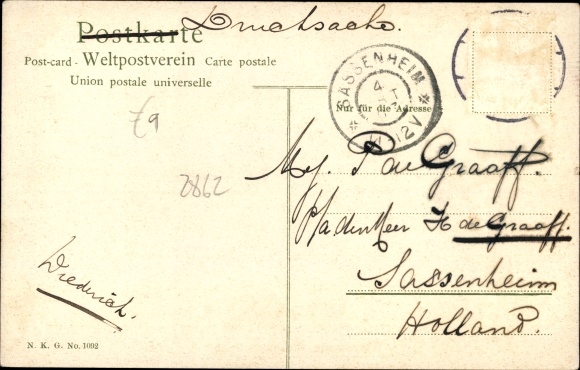 Drucksache.
Postkarte
Post-card - Weltpostverein Carte postale
Union postale universelle
SASSENHEIM
4
12V
Nur für die Adresse
Mej. P de Graaff.
p/a den Heer H de Graaff.
Sassenheim
Holland.
2862
Diederich.
N. K. G. No. 1092